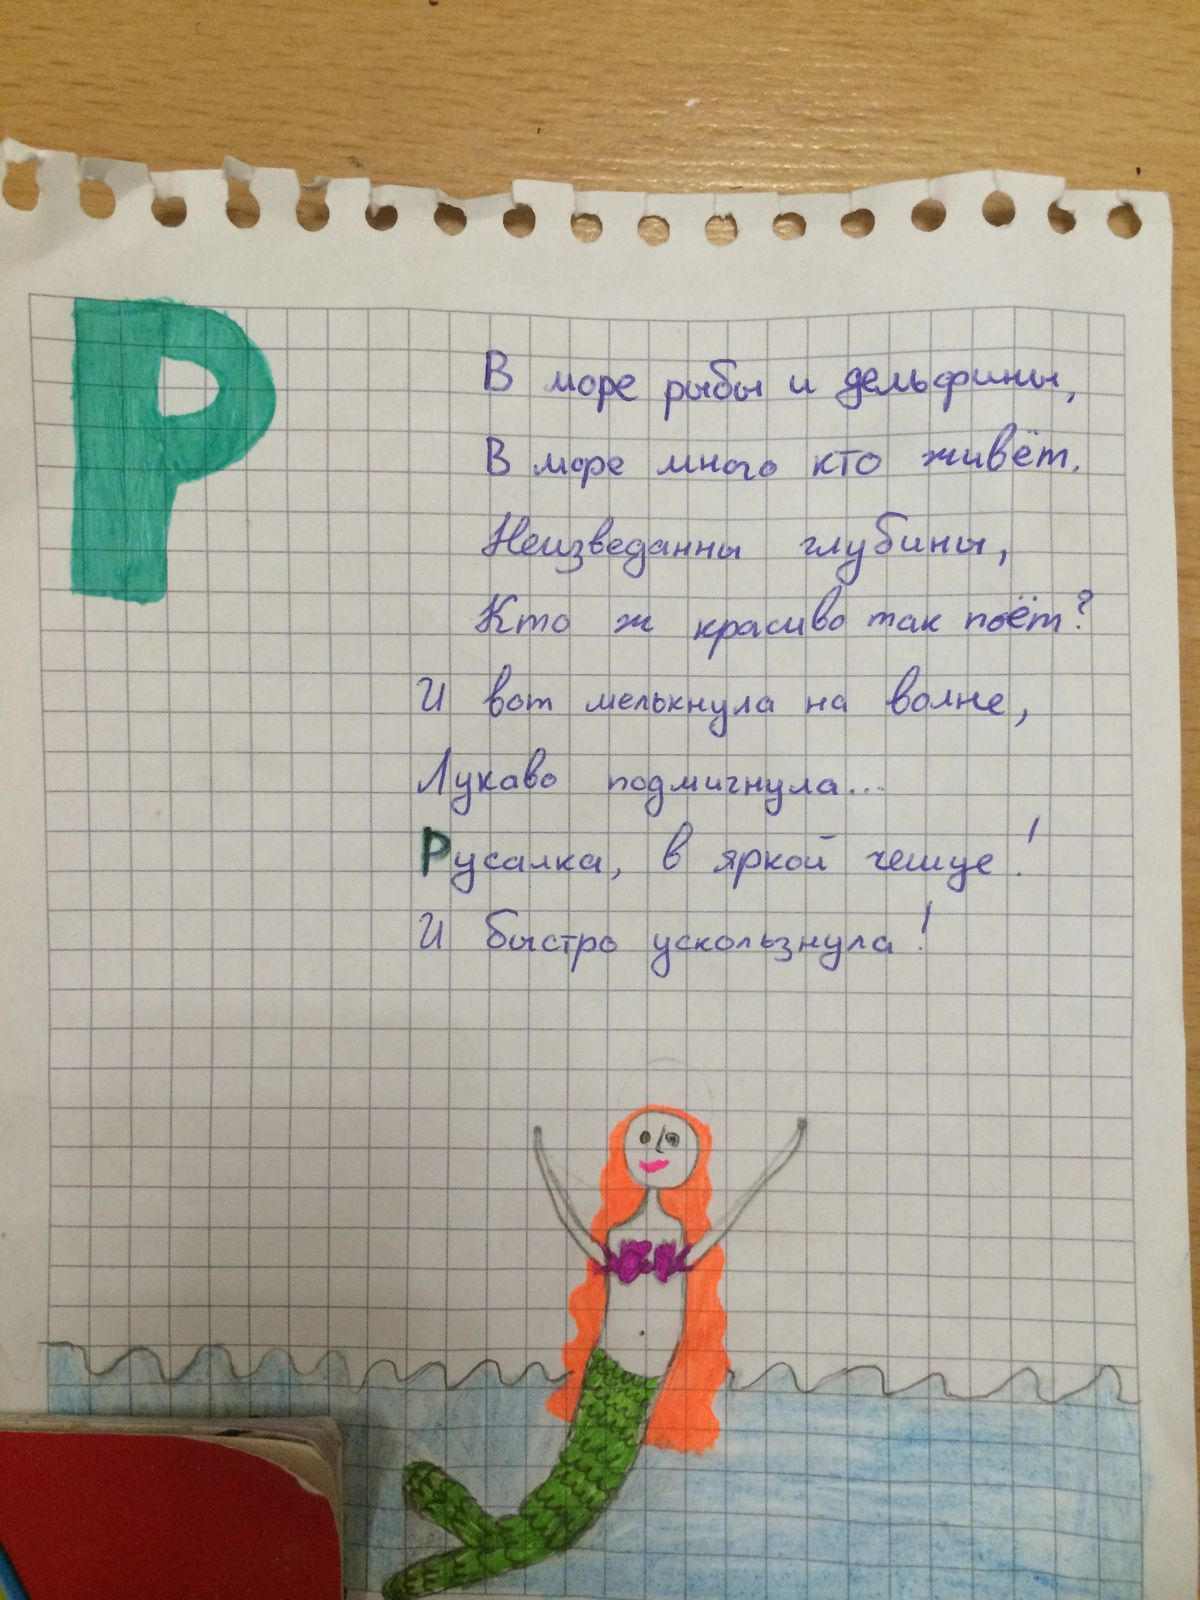 Р
В море рыбы и дельфины,
В море много кто живёт.
Неизведанны глубины,
Кто ж красиво так поёт?
И вот мелькнула на волне,
Лукаво подмигнула...
Русалка, в яркой чешуе!
И быстро ускользнула!